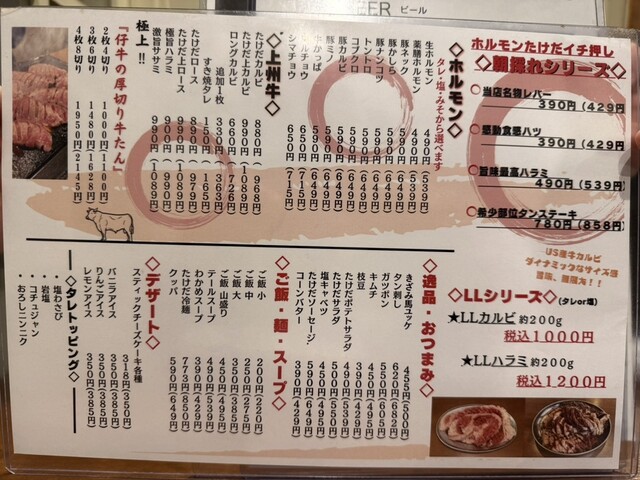 BEER ビール
ホルモンたけだイチ押し
◇朝採れシリーズ◇
○当店名物レバー
390円(429円
○感動食感ハツ
390円(429円
○旨味最高ハラミ
490円(539円)
○希少部位タンステーキ
780円(858円)
US産牛カルビ
ダイナミックなサイズ感
旨塩、醤原为!!
◇LLシリーズ◇(タレor塩)
★LLカルビ 約200g
税込1000円
★LLハラミ 約200g
税込1200円
◇ホルモン◇
タレ・塩・みそから選べます
生ホルモン 490円(539円)
薬膳ホルモン 490円(539円)
豚ネック 590円(649円)
豚かしら 590円(649円)
豚ナンコツ 590円(649円)
トントロ 590円(649円)
コブクロ 590円(649円)
豚カルビ 590円(649円)
豚ミノ 590円(649円)
シマチョウ 650円(715円)
◇上州牛◇
たけだカルビ 880円(968円)
たけだ上カルビ 990円(1089円)
ロングカルビ 660円(726円)
追加1枚 330円(363円)
すき焼タレ 150円(165円)
たけだロース 890円(979円)
たけだ上ロース 990円(1089円)
極旨ハラミ 890円(979円)
激旨サガリ 990円(1089円)
極上!!
『仔牛の厚切り牛たん』
2枚4切り 1000円(1100円)
3枚6切り 1480円(1628円)
4枚8切り 1950円(2145円)
◇逸品・おつまみ◇
きざみ馬ユッケ 455円(500円)
タン刺し 620円(682円)
ガツポン 550円(605円)
キムチ 450円(495円)
枝豆
たけだポテトサラダ 490円(539円)
たけだサラダ
塩キャベツ 450円(495円)
たけだソーセージ
コーンバター 390円(429円)
◇ご飯・麺・スープ◇
ご飯 小 200円(220円)
ご飯 中 250円(275円)
ご飯 大 350円(385円)
ご飯 山盛り 450円(495円)
テールスープ 490円(539円)
わかめスープ 390円(429円)
たけだ冷麺 773円(850円)
クッパ 590円(649円)
◇デザート◇
スティックチーズケーキ各種 318円(350円)
バニラアイス 350円(385円)
りんごアイス 350円(385円)
レモンアイス 350円(385円)
◇タレトッピング◇
・塩わさび
・岩塩
・コチュジャン
・おろしニンニク